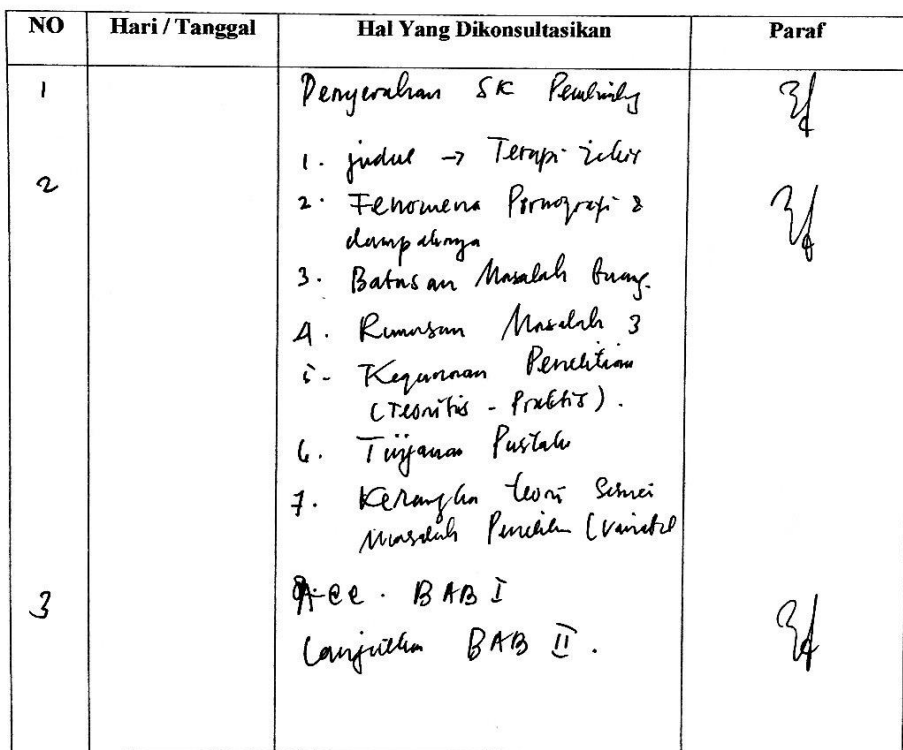 NO Hari / Tanggal Hal Yang Dikonsultasikan Paraf
1 Penyerahan SK Pembimbg
1. judul → Terapi zikir
2 2. Fenomena Pornografi &
dampaknya
3. Batasan Masalah buang.
4. Rumusan Masalah 3
5. Kegunaan Penelitian
(Teoritis - Praktis).
6. Tinjauan Pustaka
7. Kerangka teori sesuai
Masalah Penelitian (variabel
3 Acc. BAB I
Lanjutkan BAB II.